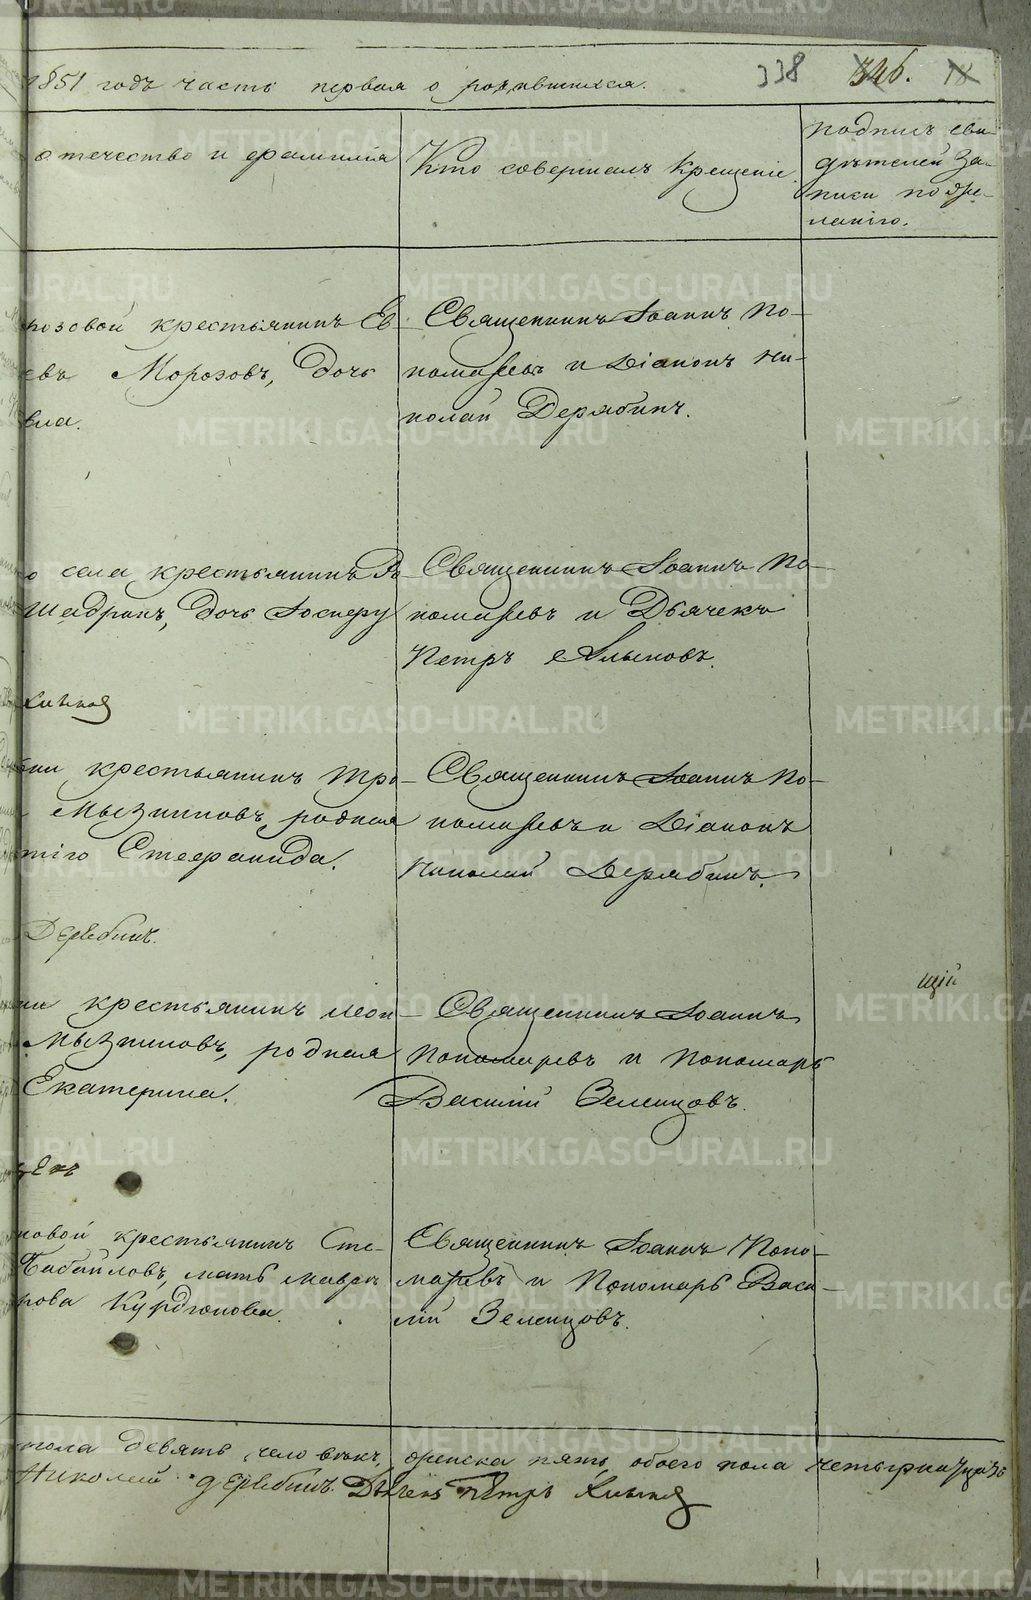 1851 годъ часть первая о родившихся. 338 326. 18
отечество и фамилия
Кто совершалъ крещеніе.
подпись сви-
дѣтелей за-
писи по же-
ланію.
розовой крестьянинъ Ев-
евъ Морозовъ, дочь
вла.
Священникъ Іоаннъ По-
номаревъ и Діаконъ Ни-
колай Дерябинъ.
о села крестьянинъ
Шадринъ, дочь
Священникъ Іоаннъ По-
номаревъ и Дьячекъ
Петръ
крестьянинъ Тро-
Мызниковъ, родная
Стефанида.
Священникъ Іоаннъ По-
номаревъ и Діаконъ
Николай Дерябинъ.
Дерябинъ.
щій
крестьянинъ Леон-
Мызниковъ, родная
Екатерина.
Священникъ Іоаннъ
Пономаревъ и Пономарь
Василій Зеленцовъ.
новой крестьянинъ Сте-
Бабайловъ, мать
рова Курдюкова.
Священникъ Іоаннъ Поно-
маревъ и Пономарь Васи-
лій Зеленцовъ.
пола девять человѣкъ, женска пять, обоего пола четырнадцать
Николай Дерябинъ. Дьячекъ Петръ
METRIKI.GASO-URAL.RU